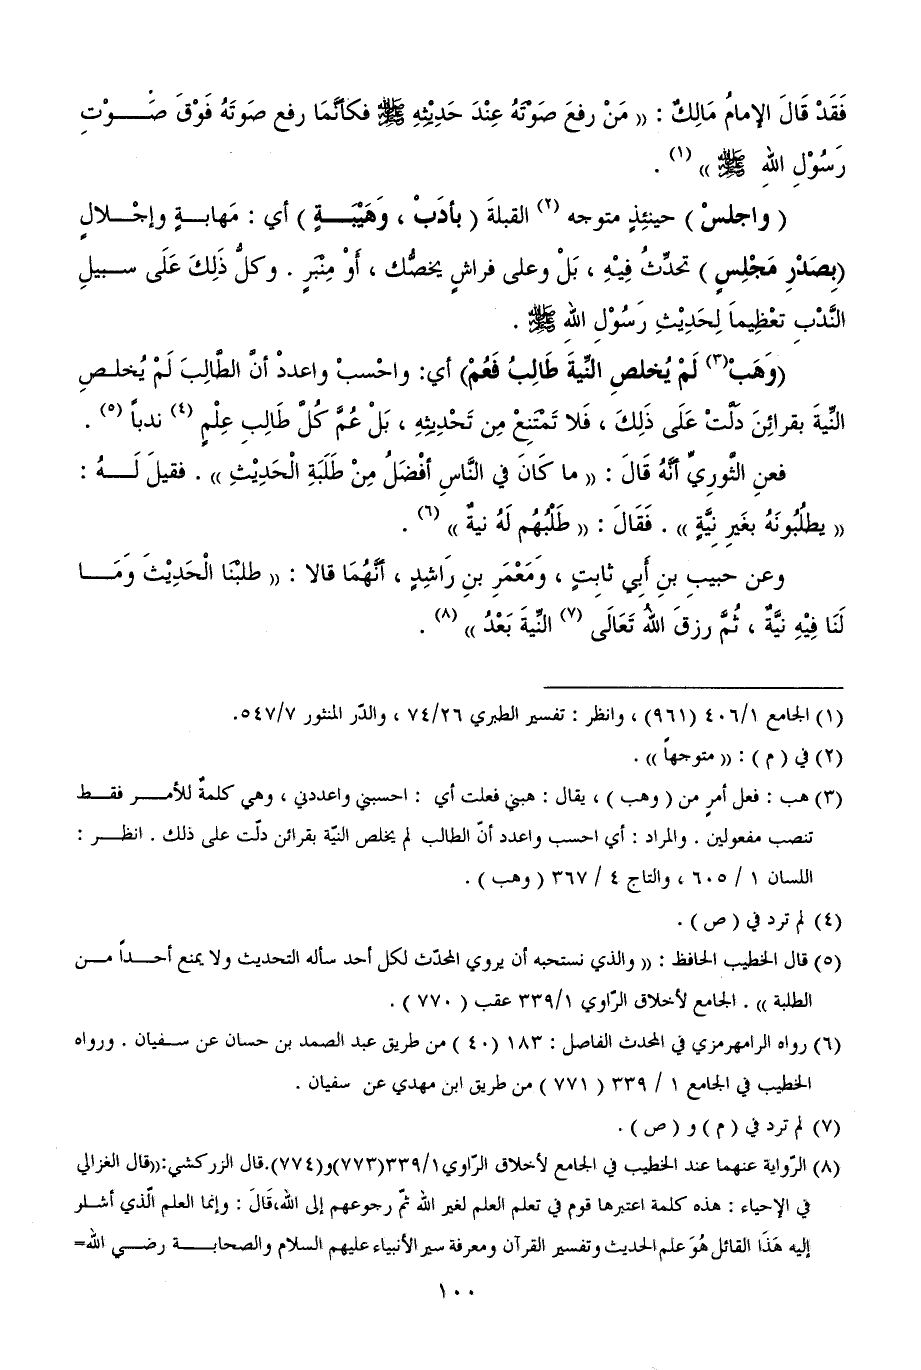 فَقَدْ قَالَ الإمامُ مَالِكٌ : « مَنْ رفعَ صَوْتَهُ عِنْدَ حَدِيْثِهِ ﷺ فكأنَّما رفع صَوتَهُ فَوْقَ صَوْتِ
رَسُوْلِ اللهِ ﷺ » (١) .
( واجلسْ ) حينئِذٍ متوجه (٢) القبلةَ ( بأدَبْ ، وَهَيْبَةٍ ) أي : مَهابةٍ وإجْلالٍ
(بِصَدْرِ مَجْلِسٍ ) تحدِّثُ فِيْهِ ، بَلْ وعلى فراشٍ يخصُّك ، أَوْ مِنْبَرٍ . وكلُّ ذَلِكَ عَلَى سبيلِ
النَّدْبِ تعْظِيماً لِحَدِيْثِ رَسُوْلِ اللهِ ﷺ .
(وَهَبْ(٣) لَمْ يُخلصِ النِّيةَ طَالِبٌ فَعُمْ) أي: واحْسبْ واعددْ أنَّ الطَّالِبَ لَمْ يُخلصِ
النِّيةَ بقرائِنَ دَلَّتْ عَلَى ذَلِكَ ، فَلا تمْتَنعْ مِن تَحْدِيثِهِ ، بَلْ عُمَّ كُلَّ طَالِبِ عِلْمٍ (٤) ندباً (٥) .
فعنِ الثَّوريِّ أنَّهُ قَالَ : « ما كَانَ في النَّاسِ أفْضَلُ مِنْ طَلَبَةِ الْحَدِيْثِ » . فقيلَ لَهُ :
« يطلُبُونَهُ بغَيرِ نِيَّةٍ » . فَقَالَ : « طَلَبُهُم لَهُ نيةٌ » (٦) .
وعن حبيبِ بنِ أَبي ثابتٍ ، ومَعْمَرِ بنِ رَاشِدٍ ، أنَّهُما قالا : « طلبْنا الْحَدِيْثَ وَمَا
لَنَا فِيْهِ نيَّةٌ ، ثُمَّ رزقَ اللهُ تَعَالَى (٧) النِّيةَ بَعْدُ » (٨) .
(١) الجامع ٤٠٦/١ (٩٦١) ، وانظر : تفسير الطبري ٧٤/٢٦ ، والدّر المنثور ٥٤٧/٧.
(٢) في ( م ) : « متوجهاً » .
(٣) هب : فعل أمرٍ من ( وهب ) ، يقال : هبني فعلت أي : احسبني واعددني ، وهي كلمةٌ للأمر فقط
تنصب مفعولين . والمراد : أي احسب واعدد أنّ الطالب لم يخلص النيّة بقرائن دلّت على ذلك . انظر :
اللسان ١ / ٦٠٥ ، والتاج ٤ / ٣٦٧ ( وهب ) .
(٤) لم ترد في ( ص ) .
(٥) قال الخطيب الحافظ : « والذي نستحبه أن يروي المحدّث لكل أحد سأله التحديث ولا يمنع أحداً من
الطلبة » . الجامع لأخلاق الرّاوي ٣٣٩/١ عقب ( ٧٧٠ ) .
(٦) رواه الرامهرمزي في المحدث الفاصل : ١٨٣ (٤٠ ) من طريق عبد الصمد بن حسان عن سفيان . ورواه
الخطيب في الجامع ١ / ٣٣٩ ( ٧٧١ ) من طريق ابن مهدي عن سفيان .
(٧) لم ترد في ( م ) و ( ص ) .
(٨) الرّواية عنهما عند الخطيب في الجامع لأخلاق الرّاوي٣٣٩/١(٧٧٣)و(٧٧٤).قال الزركشي:«قال الغزالي
في الإحياء : هذه كلمة اعتبرها قوم في تعلم العلم لغير الله ثمّ رجوعهم إلى الله،قَالَ : وإنما العلم الّذي أشار
إليه هَذَا القائل هُوَ علم الحديث وتفسير القرآن ومعرفة سير الأنبياء عليهم السلام والصحابة رضي الله=
١٠٠